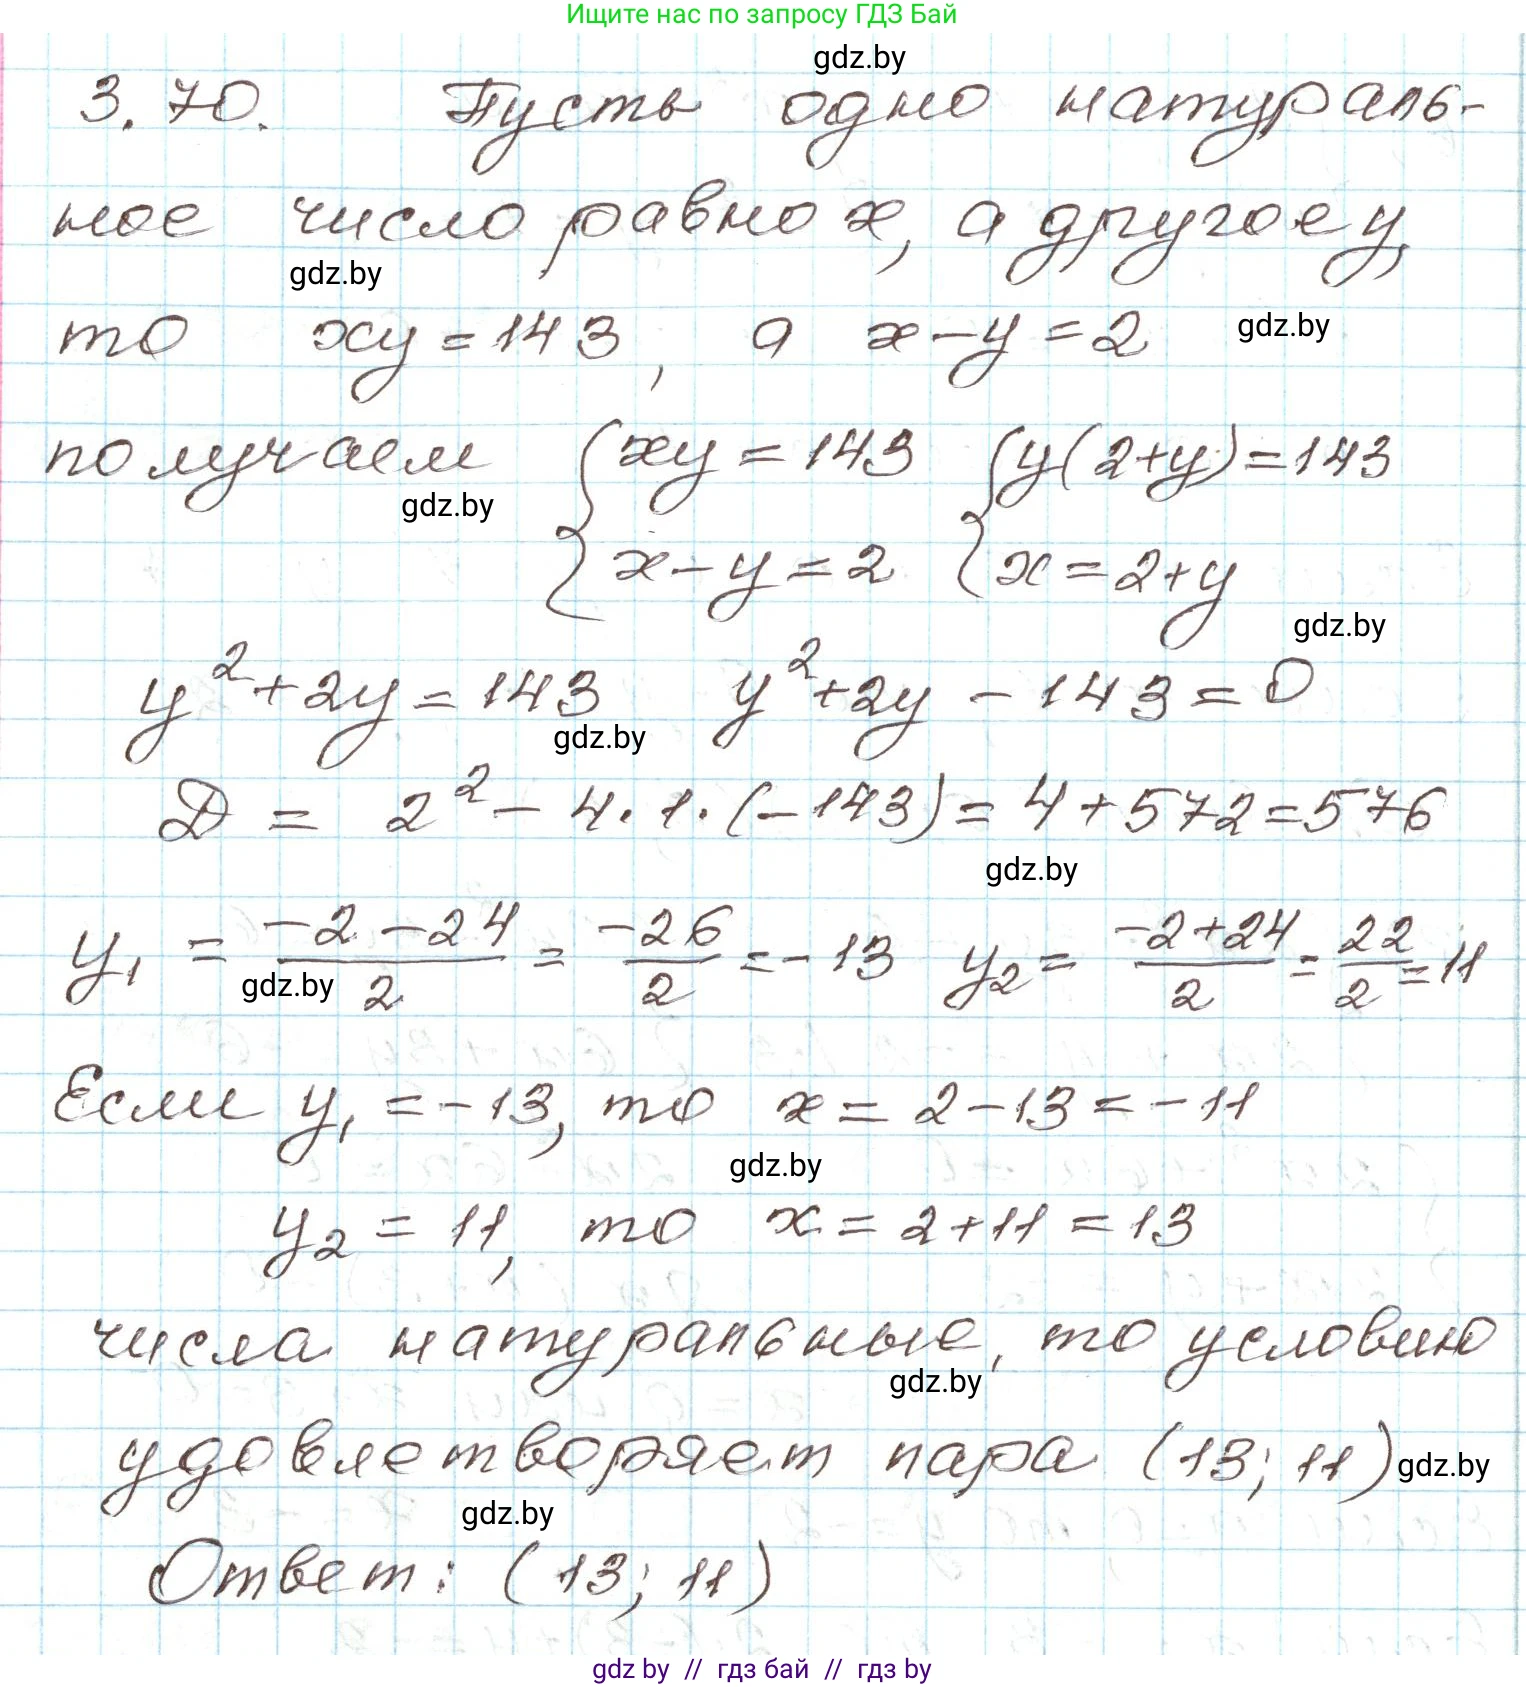 Ищите нас по запросу ГДЗ Бай
gdz.by
3.70. Пусть одно натураль-
ное число равно x, а другое y,
gdz.by
то xy = 143, а x - y = 2 gdz.by
получаем { xy = 143 { y(2+y) = 143
gdz.by
{ x - y = 2 { x = 2 + y
gdz.by
y² + 2y = 143 y² + 2y - 143 = 0
gdz.by
Д = 2² - 4 · 1 · (-143) = 4 + 572 = 576
gdz.by
y₁ = (-2 - 24)/2 = -26/2 = -13 y₂ = (-2 + 24)/2 = 22/2 = 11
gdz.by
Если y₁ = -13, то x = 2 - 13 = -11
gdz.by
y₂ = 11, то x = 2 + 11 = 13
числа натуральные, то условию
gdz.by
удовлетворяет пара (13; 11) gdz.by
gdz.by
Ответ: (13; 11)
gdz.by // гдз бай // гдз by